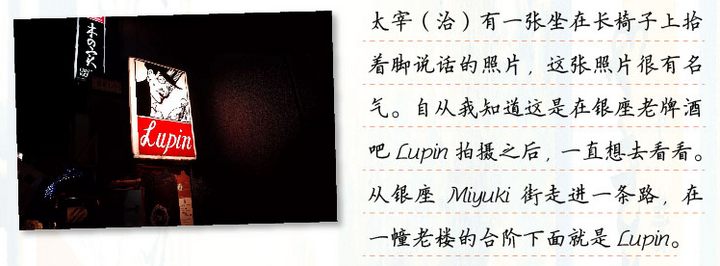 Lupin
太宰（治）有一张坐在长椅子上抬
着脚说话的照片，这张照片很有名
气。自从我知道这是在银座老牌酒
吧 Lupin 拍摄之后，一直想去看看。
从银座 Miyuki 街走进一条路，在
一幢老楼的台阶下面就是 Lupin。